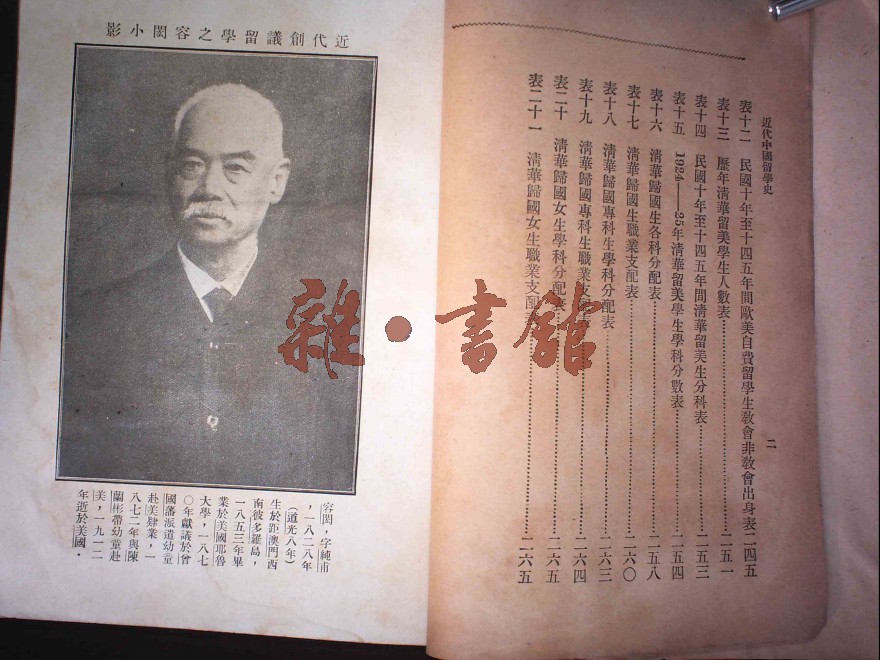 近代中國留學史
二
表十二 民國十年至十四五年間歐美自費留學生敎會非敎會出身表二四五
表十三 歷年清華留美學生人數表……二五一
表十四 民國十年至十四五年間清華留美生分科表……二五三
表十五 1924——25年清華留美學生學科分數表……二五四
表十六 清華歸國生各科分配表……二五八
表十七 清華歸國生職業支配表……二六〇
表十八 清華歸國專科生學科分配表……二六三
表十九 清華歸國專科生職業支配表……二六四
表二十 清華歸國女生學科分配表……二六五
表二十一 清華歸國女生職業支配表……二六五
近代創議留學之容閎小影
容閎，字純甫
，一八二八年
（道光八年）
生於距澳門西
南彼多羅島，
一八五三年畢
業於美國耶魯
大學，一八七
〇年獻議於曾
國藩派遣幼童
赴美肄業，一
八七二年與陳
蘭彬帶幼童赴
美，一九一二
年逝於美國．
雜·書館